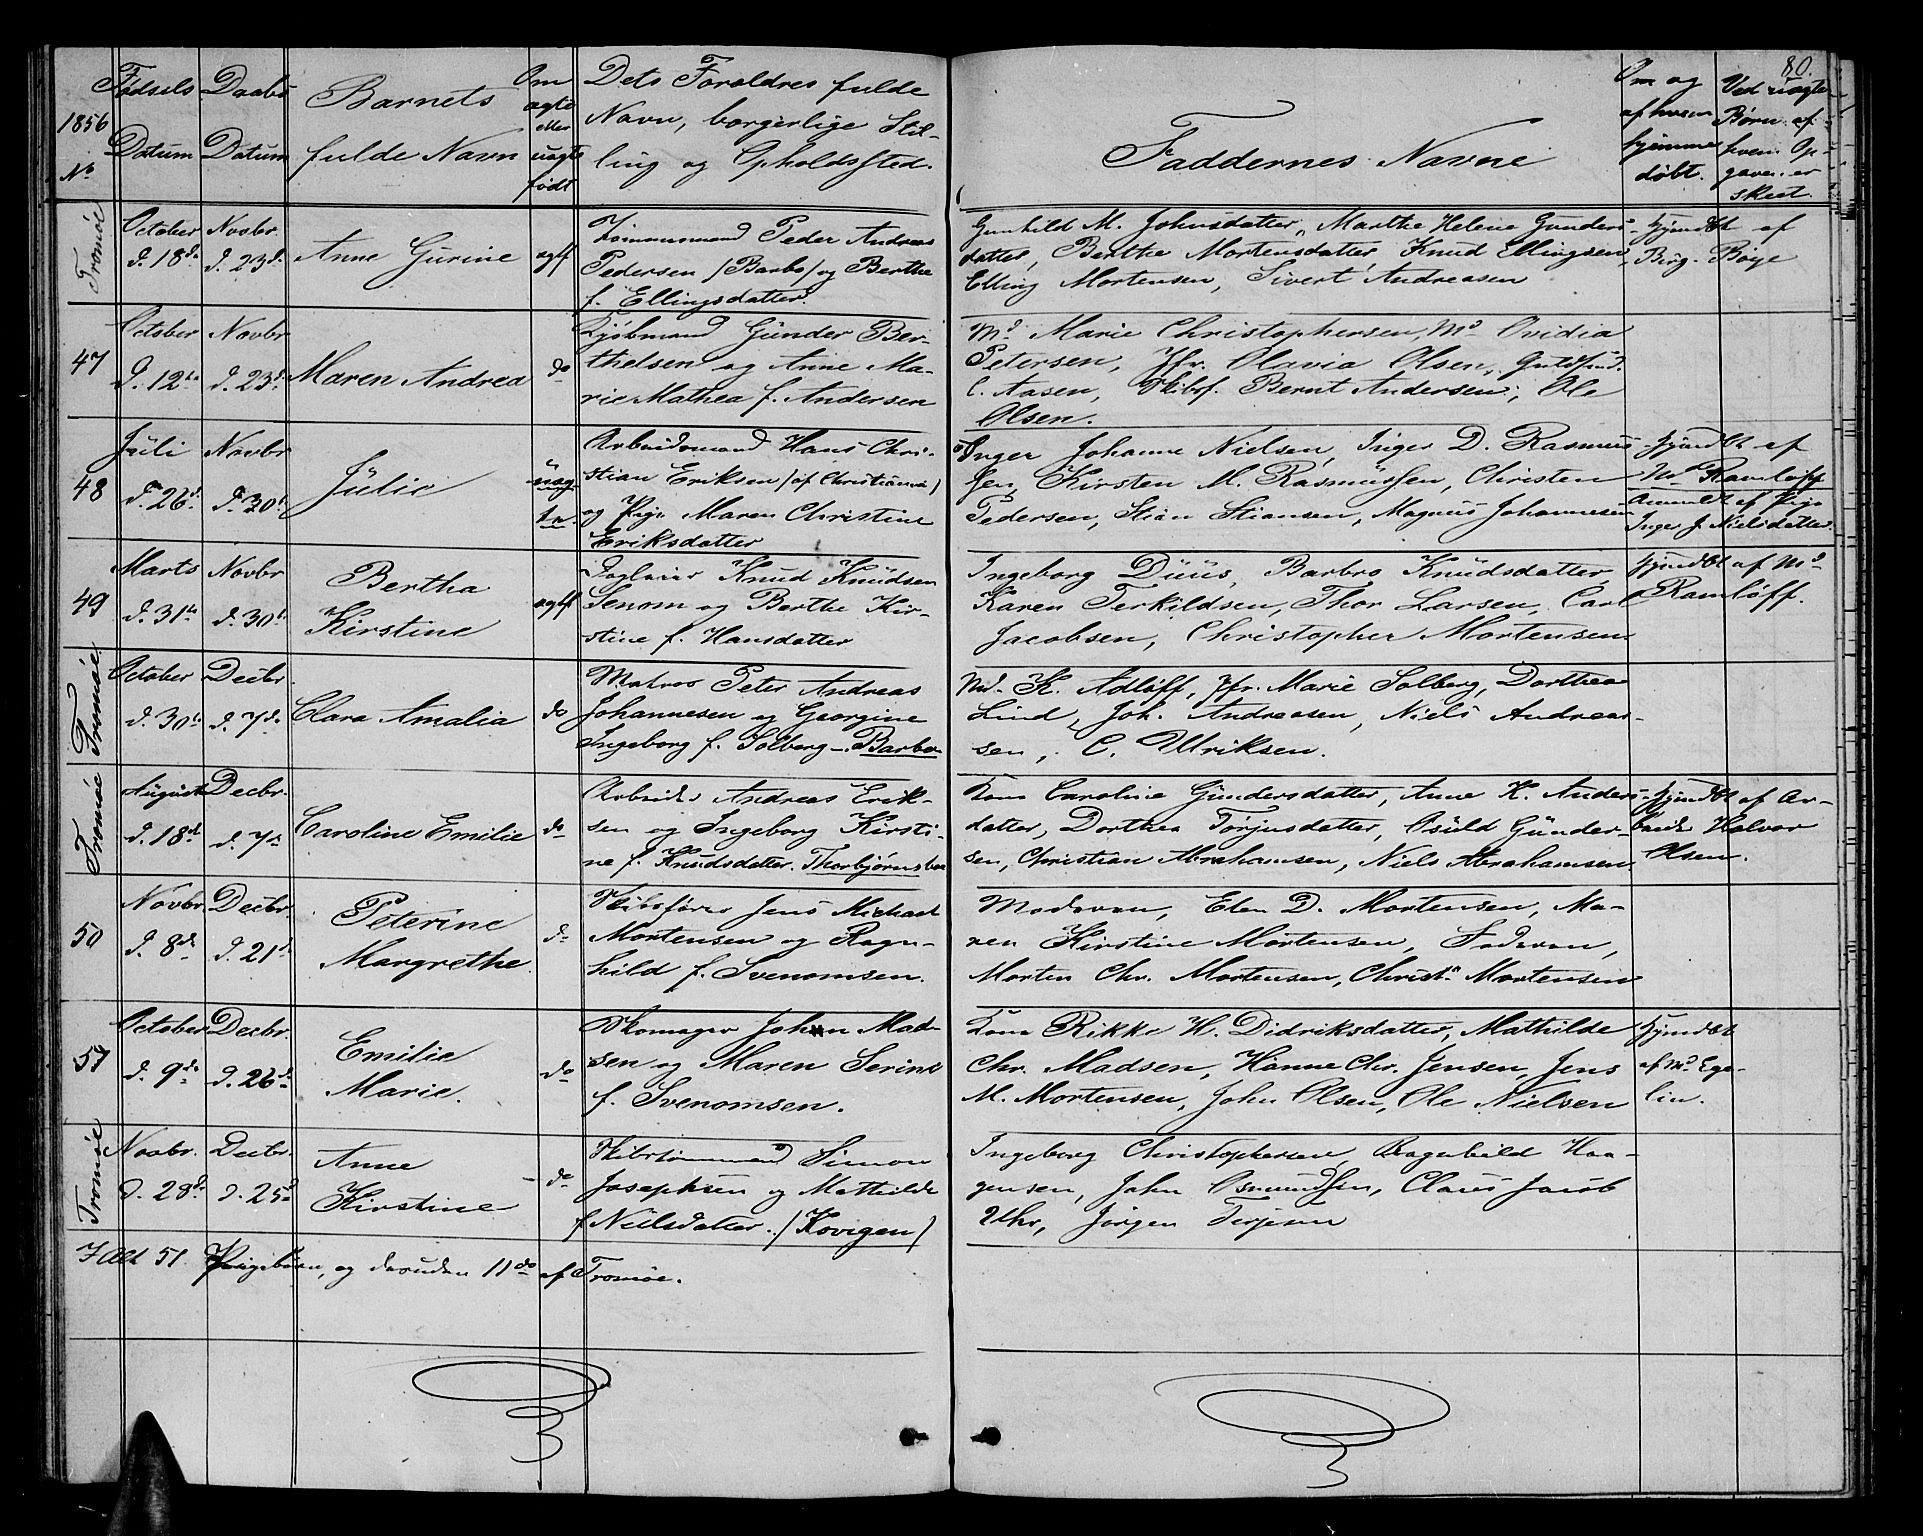 80.
1856
No
Fødsels
Datum
Daabs
Datum
Barnets
fulde Navn
Om
ægte
eller
uægte
født
Dets Forældres fulde
Navn, borgerlige Stil-
ling og Opholdssted.
Faddernes Navne
Om og
af hvem
hjemme
døbt.
Ved uægte
Børn, af
hvem Op-
gaven er
skeet.
Tromøe
October Novbr.
d. 18de d. 23de
Anne Gurine
ægte
Tømmermand Peder Andreas
Pedersen (Barbo) og Berthe
f. Ellingsdatter.
Gunhild M. Johnsdatter, Marthe Helene Gunders-
datter, Berthe Mortensdatter, Knud Ellingsen,
Elling Mortensen, Sivert Andreasen
Hjmdbt af
Børge
47
October Novbr
d. 12te d. 23de
Maren Andrea
do
Kjøbmand Gunder Ber-
thelsen og Anne Ma-
rie Mathea f. Andersen
Md Marie Christophersen, Md Ovidia
Petersen, Jfr. Olavia Olsen, Guldsmd.
C. Aasen, Skibsf. Bernt Andersen, Ole
Olsen.
48
Juli Novbr
d. 26de d. 30te
Julie
uæg
te
Arbeidsmand Hans Chri-
stian Eriksen (af Christiania)
og Pige Maren Christine
Eriksdatter
Inger Johanne Nielsen, Inger D. Rasmus-
sen, Kirsten M. Rasmussen, Christen
Pedersen, Stian Stiansen, Magnus Johannesen
Hjmdbt af
Md Ramløff
Anmeldt af Pige
Inger J. Nielsdatter.
49
Marts Novbr
d. 31te d. 30te
Bertha
Kirstine
ægte
Daglejer Knud Knudsen
Senom og Berthe Kir-
stine f. Hansdatter
Ingeborg Duus, Barbro Knudsdatter,
Karen Terkildsen, Thor Larsen, Carl
Jacobsen, Christopher Mortensen
Hjmdbt af Md
Ramløff.
Tromøe
October Decbr.
d. 30te d. 7de
Clara Amalia
do
Matros Peter Andreas
Johannesen og Georgine
Ingeborg f. Solberg - Barbo
Md. K. Adløff, Jfr. Marie Solberg, Dorthea
Lind, Joh. Andreasen, Niels Andrea-
sen, C. Ulriksen.
Tromøe
August Decbr.
d. 18de d. 7de
Caroline Emilie
do
Arbeider Andreas Erik-
sen og Ingeborg Kirsti-
ne f. Knudsdatter. Thorbjørnsbo
Kone Caroline Gundersdatter, Anne K. Anders-
datter, Dorthea Torjusdatter, Osuld Gunder-
sen, Christian Abrahamsen, Niels Abrahamsen.
Hjmdbt af Ar-
beider Halvor
Olsen.
50
Novbr. Decbr.
d. 8de d. 21de
Peterine
Margrethe
do
Skibsfører Jens Michael
Mortensen og Ragn-
hild f. Svenomsen.
Moderen, Elen D. Mortensen, Ma-
ren Kirstine Mortensen, Faderen,
Morten Chr. Mortensen, Christn Mortensen
51
October Decbr.
d. 9de d. 26de
Emilie
Marie.
do
Skomager Johan Mad-
sen og Maren Serine
f. Svenomsen.
Kone Rikke H. Didriksdatter, Mathilde
Chr. Madsen, Hanne Chr. Jensen, Jens
M. Mortensen, John Olsen, Ole Nielsen
Hjmdbt
af Md. Ege-
lin.
Tromøe
Novbr. Decbr.
d. 28de d. 25de
Anne
Kirstine
do
Skibstømmermand Simon
Josephsen og Mathilde
f. Nielsdatter. (Kovigen)
Ingeborg Christophersen, Ragnhild Haa-
gensen, John Osmundsen, Claus Jacob
Uhr, Jørgen Terjesen
I Alt 51 Pigebørn, og desuden 11 do af Tromøe.